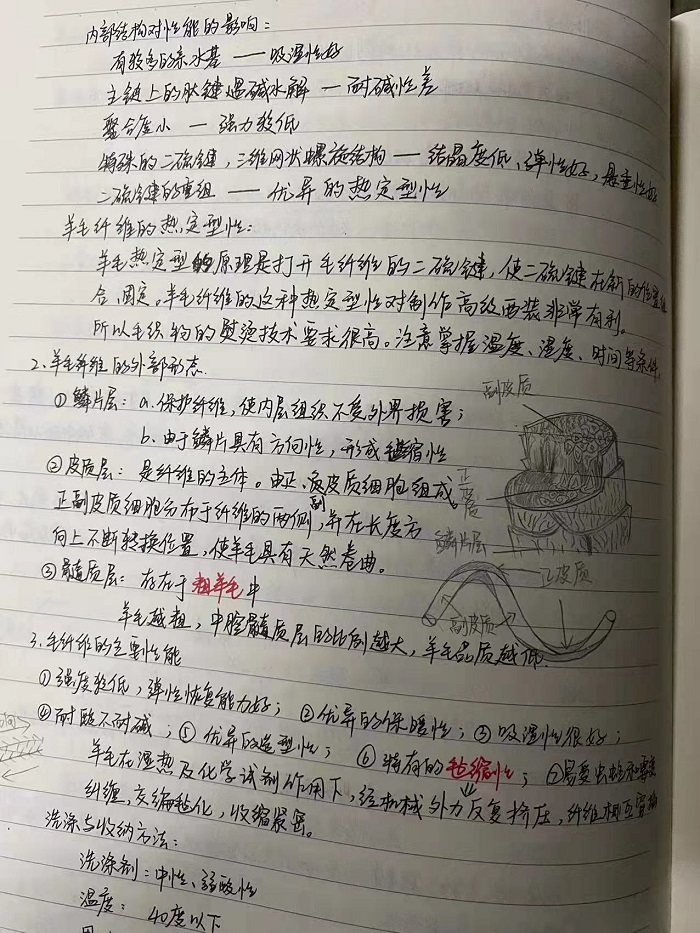 内部结构对性能的影响：
有较多的亲水基 —— 吸湿性好
主链上的肽键遇碱水解 — 耐碱性差
聚合度小 — 强力较低
特殊的二硫键，三维网状螺旋结构 —— 结晶度低、弹性好，悬垂性好
二硫键的重组 —— 优异的热定型性
羊毛纤维的热定型性：
羊毛热定型的原理是打开毛纤维的二硫键，使二硫键在新的位置
合、固定。羊毛纤维的这种热定型性对制作高级西装非常有利。
所以毛织物的熨烫技术要求很高。注意掌握温度、湿度、时间等条件。
2、羊毛纤维的外部形态.
① 鳞片层：a.保护纤维，使内层组织不受外界损害；
b.由于鳞片具有方向性，形成毡缩性
② 皮质层：是纤维的主体。由正、副皮质细胞组成。
正副皮质细胞分布于纤维的两侧，并在长度方
向上不断转换位置，使羊毛具有天然卷曲。
③ 髓质层：存在于粗羊毛中
羊毛越粗，中腔髓质层的比例越大，羊毛品质越低.
副皮质
正皮质
鳞片层
正皮质
副皮质
3.毛纤维的主要性能
① 强度较低，弹性恢复能力好；②优异的保暖性；③ 吸湿性很好；
④ 耐酸不耐碱；⑤ 优异的造型性；⑥ 特有的毡缩性；⑦易受虫蛀和霉
羊毛在湿热及化学试剂作用下，经机械外力反复挤压，纤维相互穿插
纠缠，交编毡化，收缩紧密。
洗涤与收纳方法：
洗涤剂：中性、弱酸性
温度：40度以下